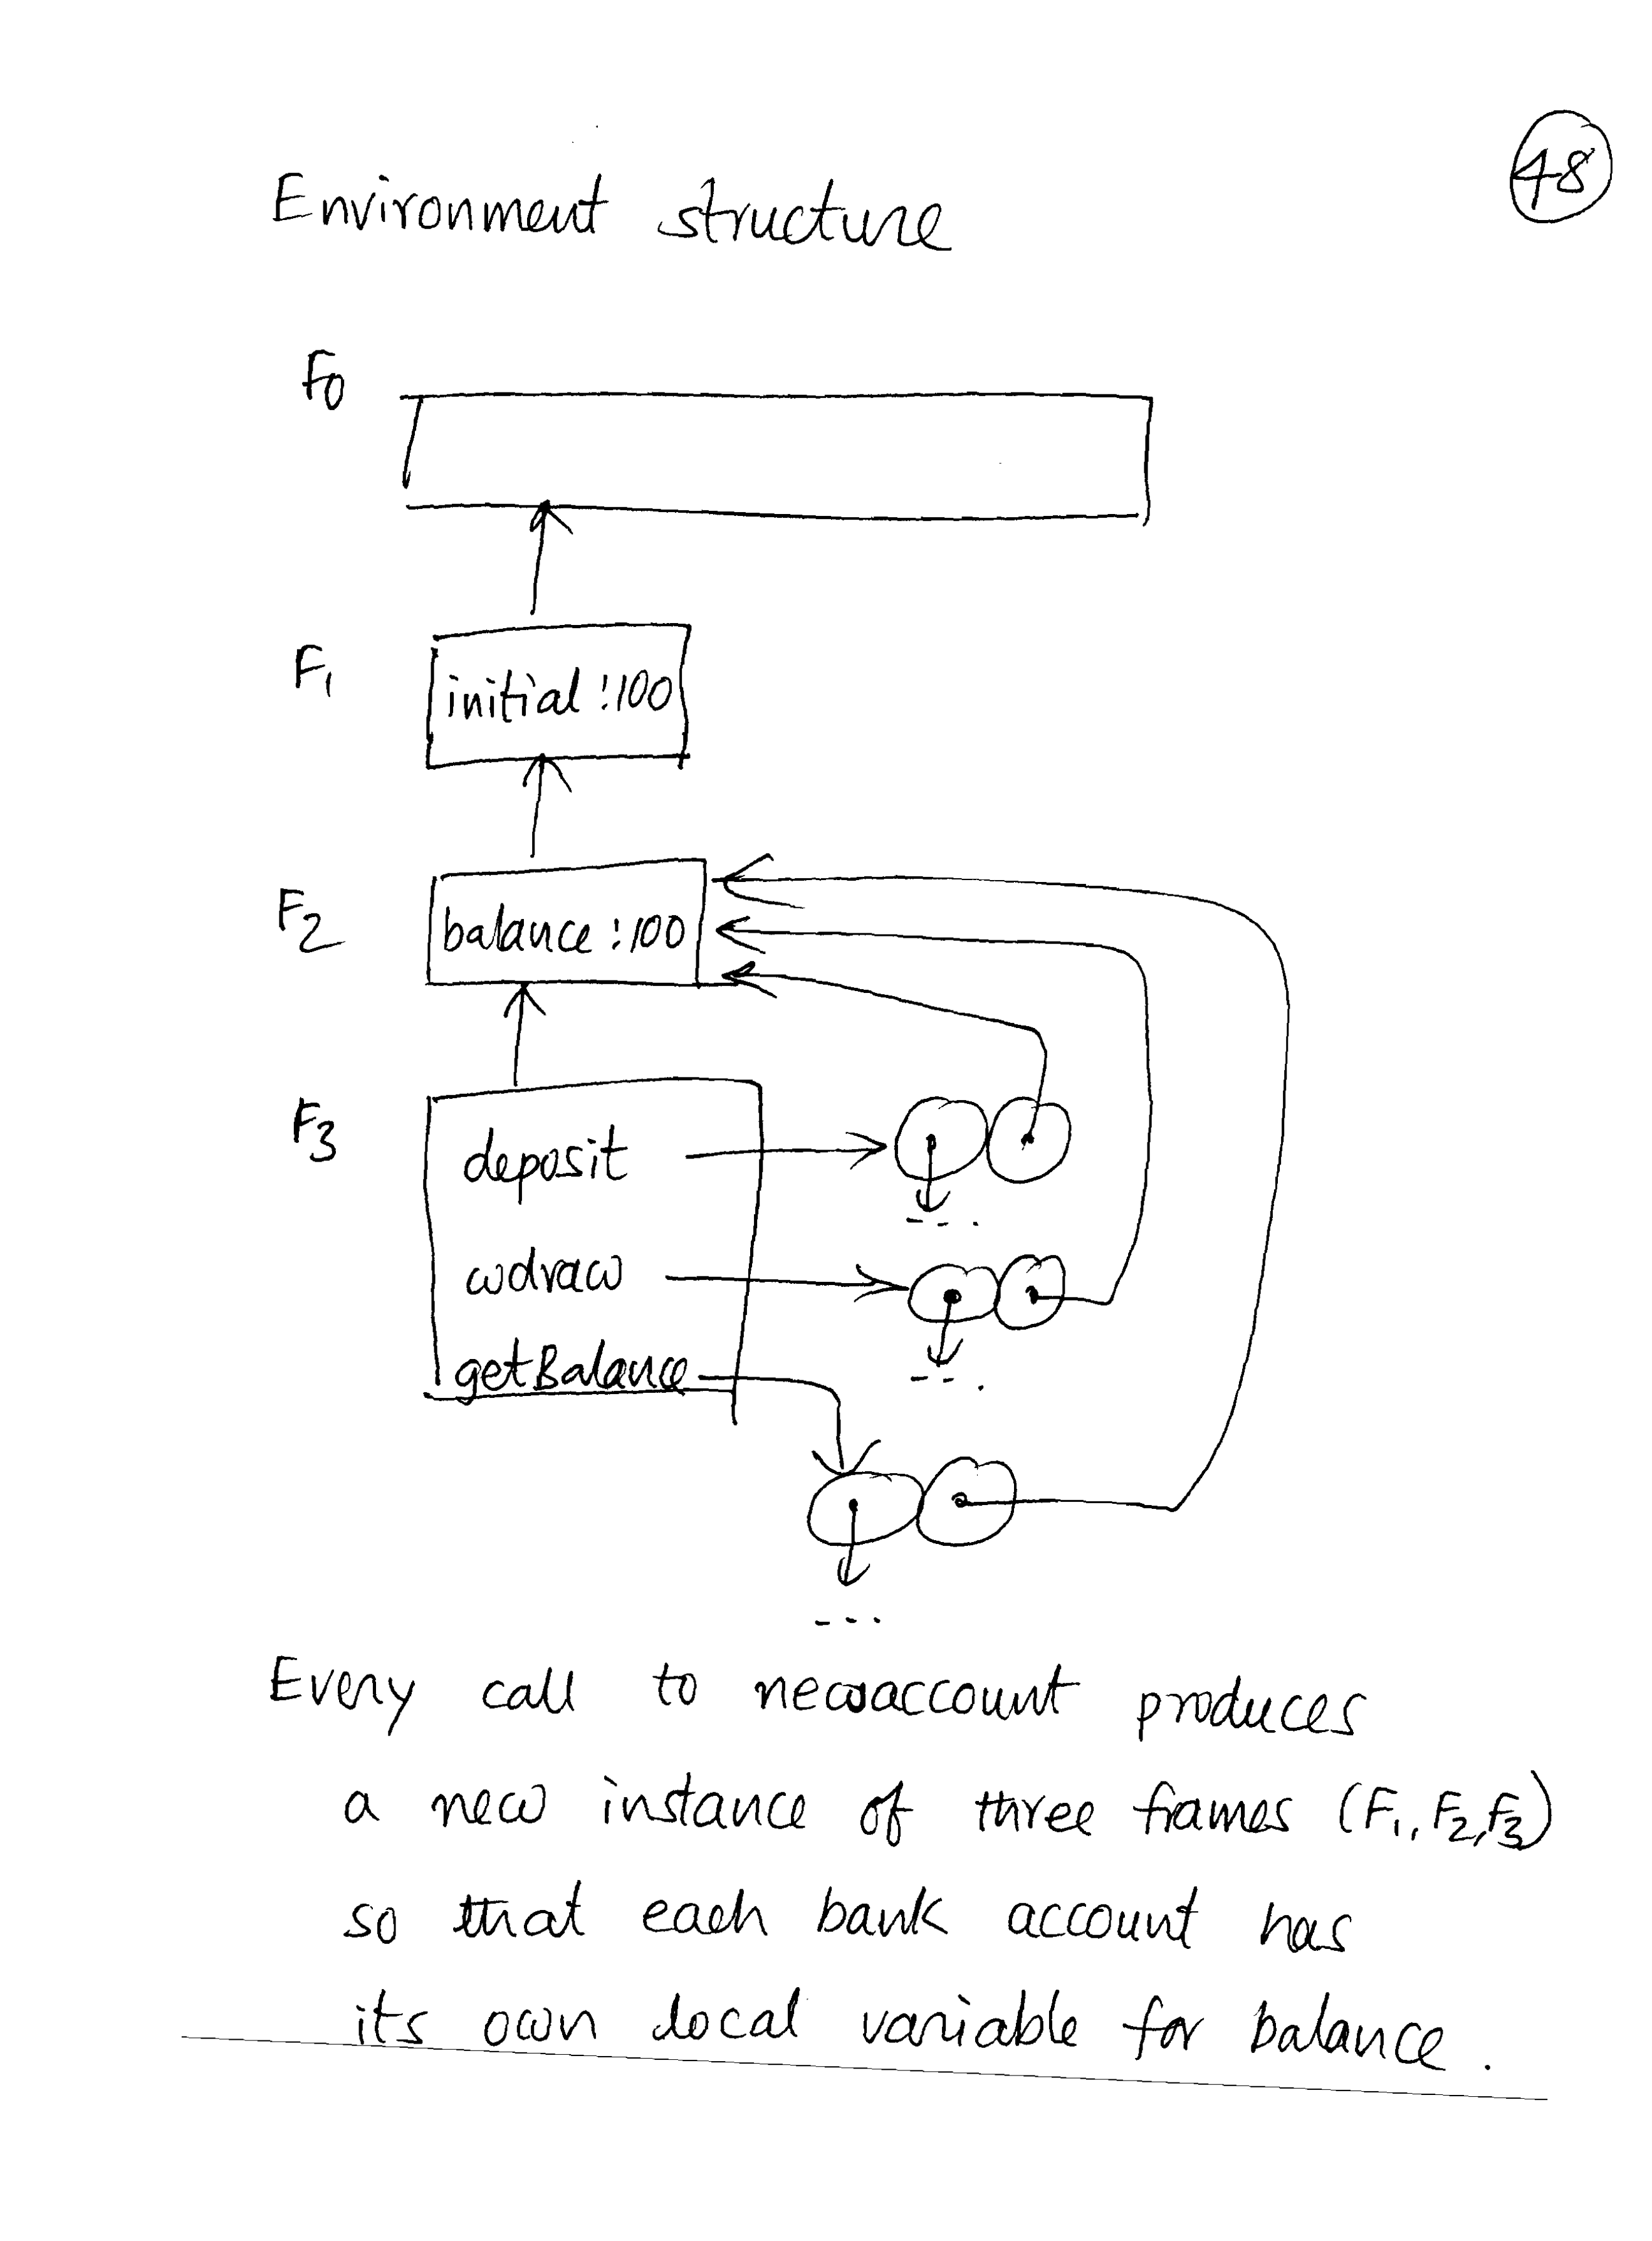 48
Environment structure
F0
F1
initial : 100
F2
balance : 100
F3
deposit
wdraw
getBalance
Every call to newaccount produces
a new instance of three frames (F1, F2, F3)
so that each bank account has
its own local variable for balance.